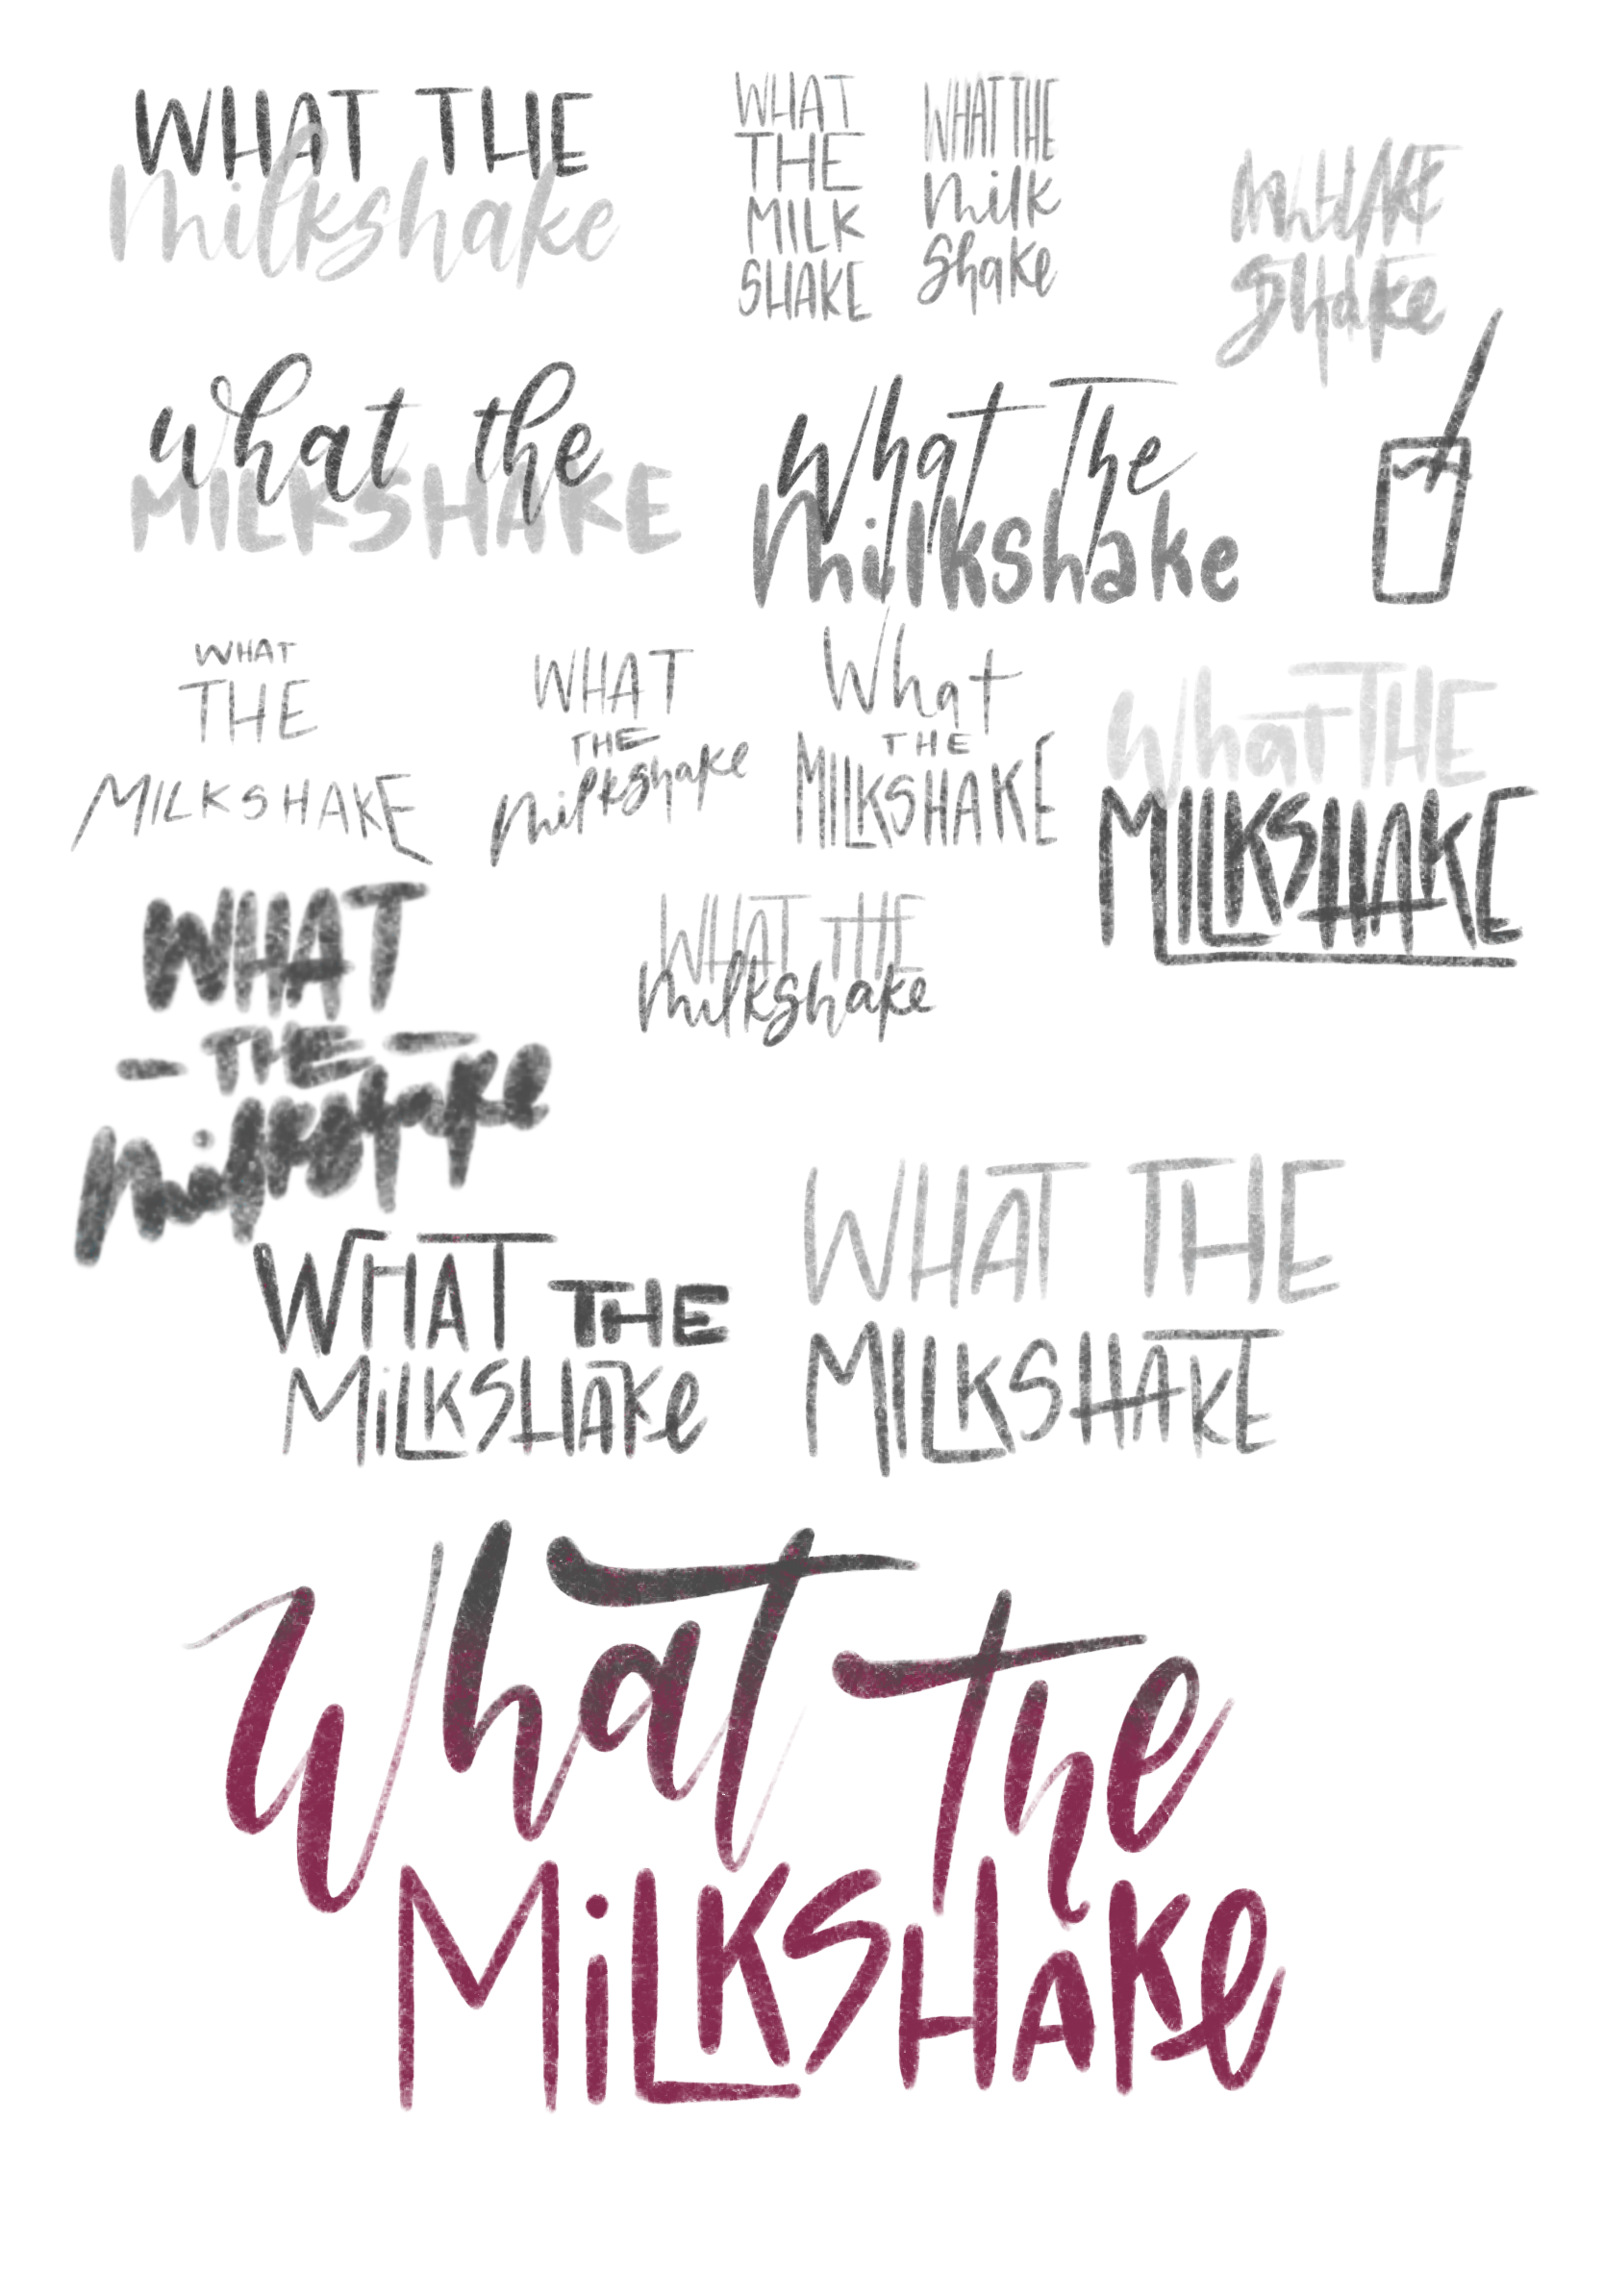 WHAT THE
Milkshake
WHAT
THE
MILK
SHAKE
WHAT THE
Milk
Shake
Shake
what the
MILKSHAKE
What The
Milkshake
WHAT
THE
MILKSHAKE
WHAT
THE
Milkshake
What
THE
MILKSHAKE
WhaT THE
MILKSHAKE
WHAT
- THE -
Milkshake
WHAT THE
Milkshake
WHAT THE
MiLKSHAKe
WHAT THE
MILKSHAKE
What the
MiLKSHAKe